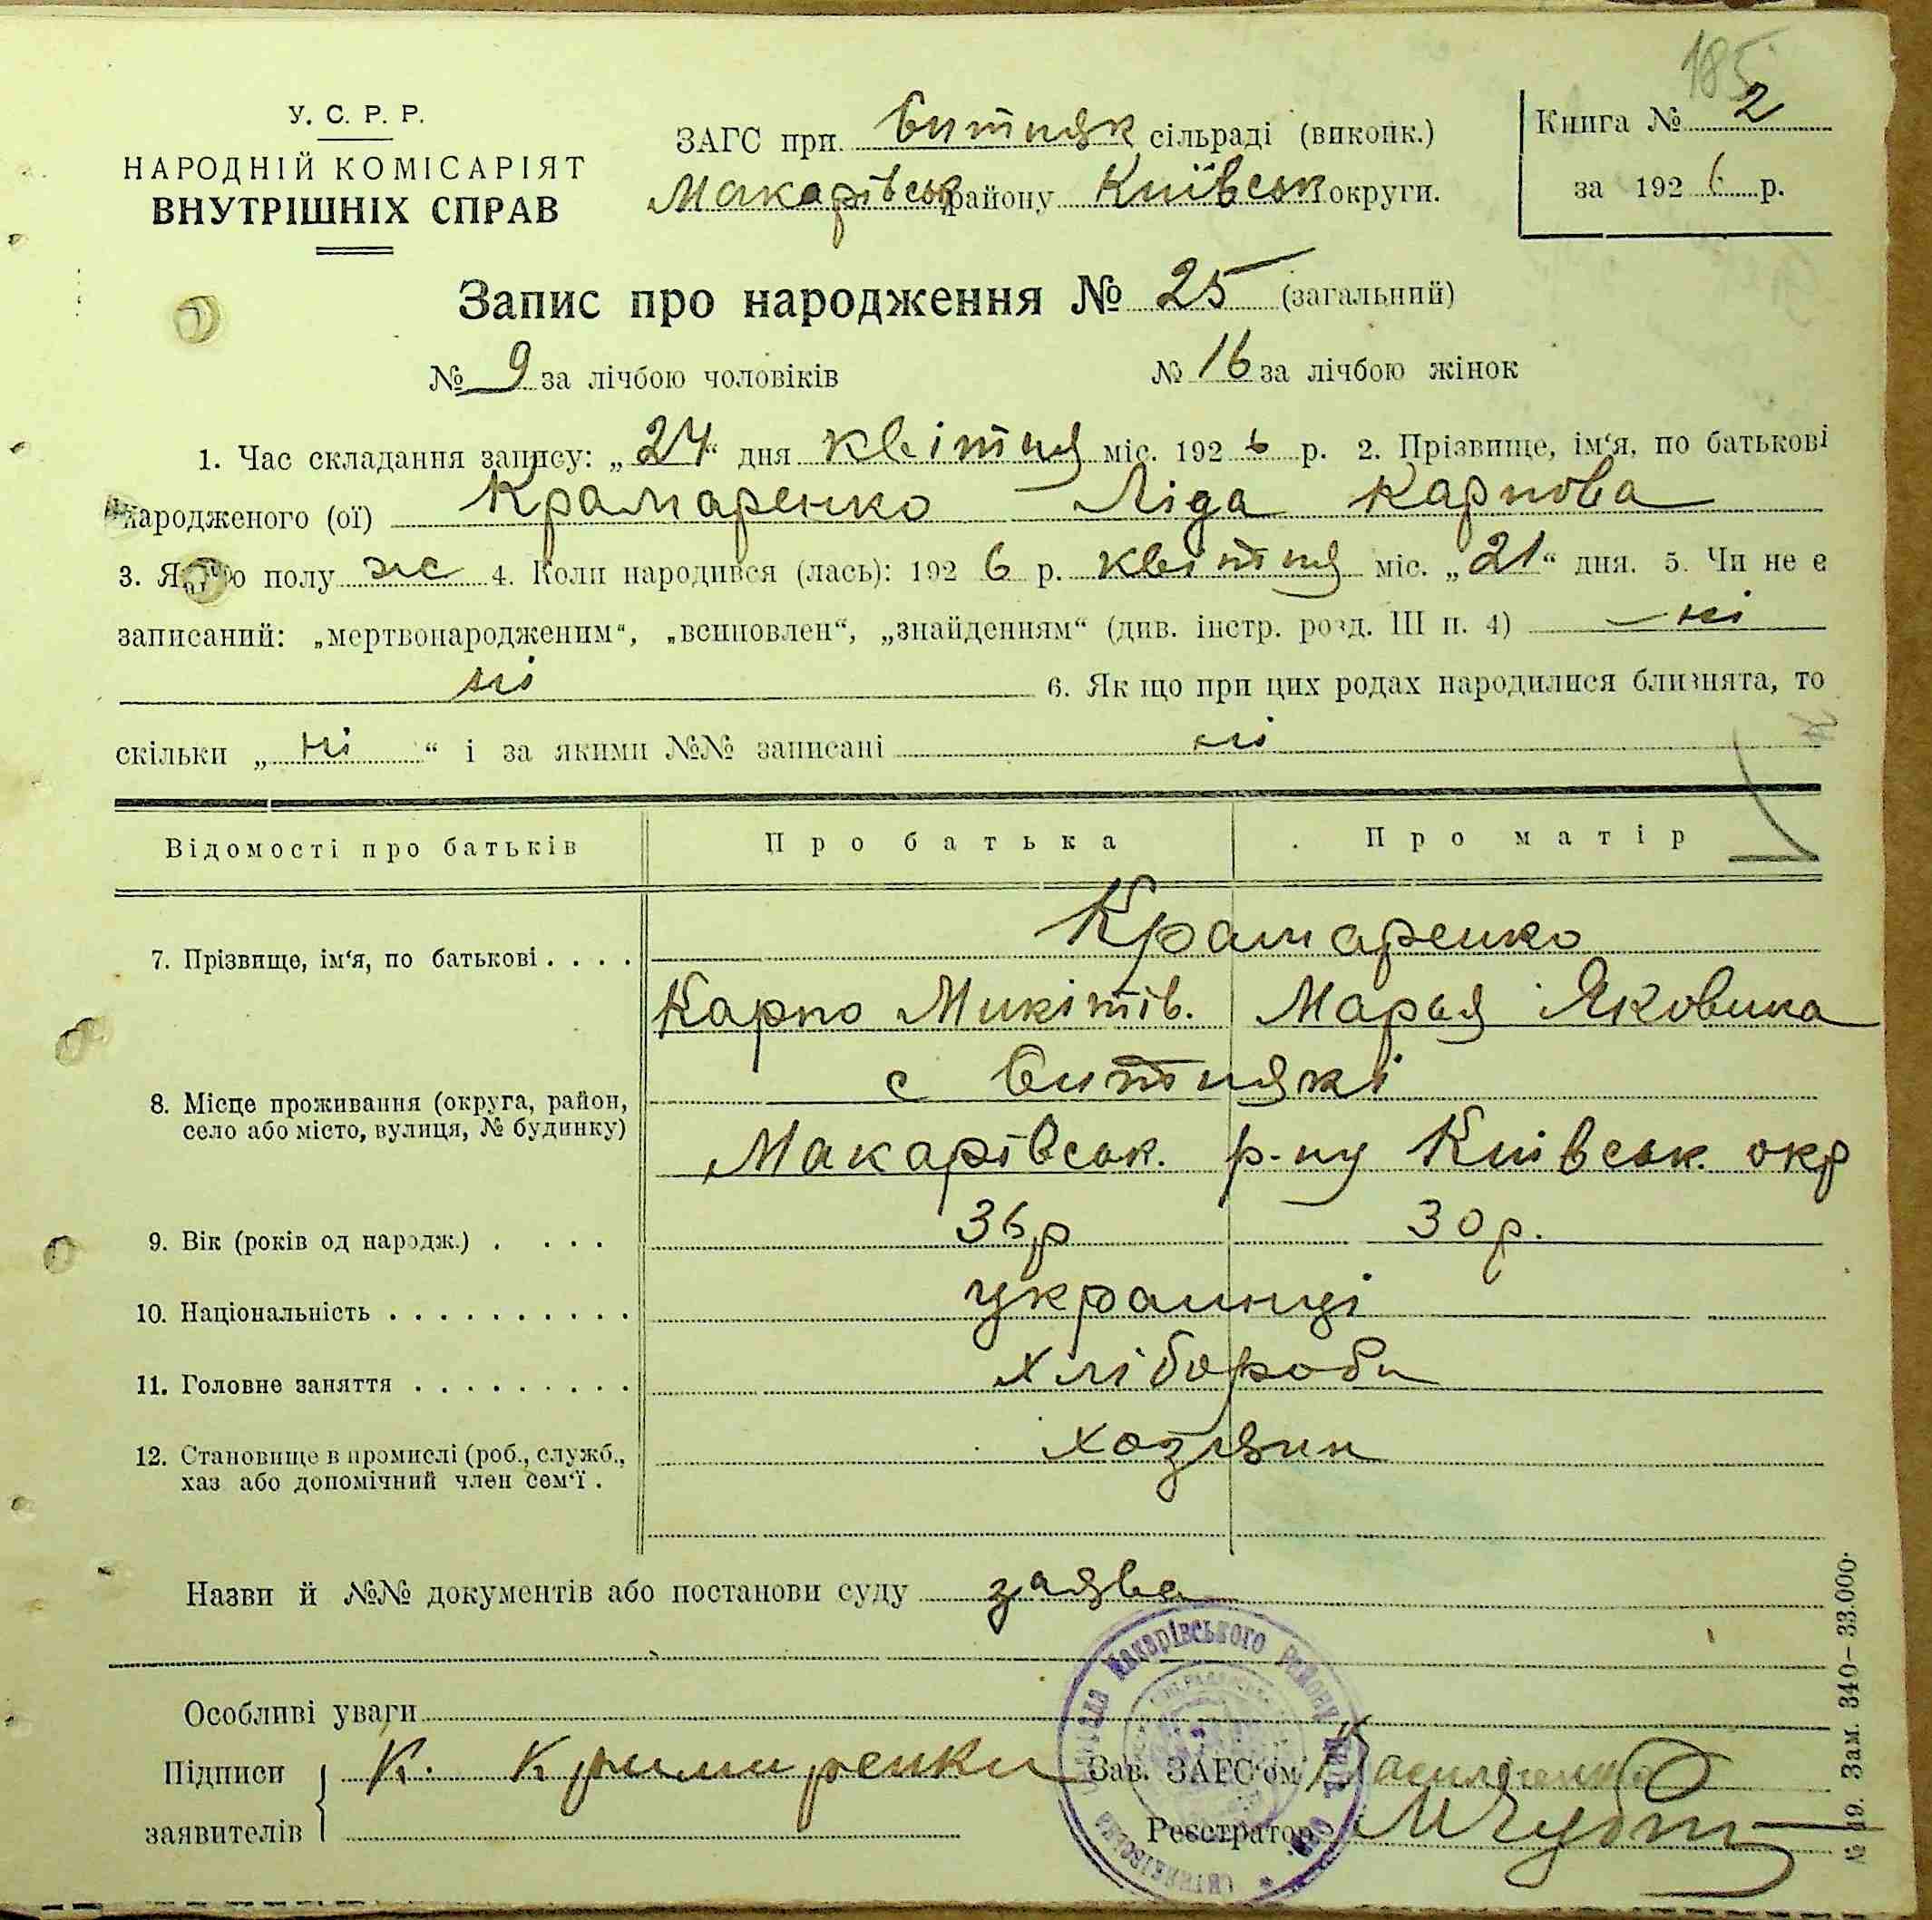 185
У. С. Р. Р.
НАРОДНІЙ КОМІСАРІЯТ
ВНУТРІШНІХ СПРАВ
ЗАГС при Ситняк сільраді (виконк.)
Макарівськ району Київськ округи.
Книга № 2
за 1926 р.
Запис про народження № 25 (загальний)
№ 9 за лічбою чоловіків № 16 за лічбою жінок
1. Час складання запису: „24“ дня квітня міс. 1926 р. 2. Прізвище, ім‘я, по батькові
народженого (ої) Крамаренко Ліда Карпова
3. Якого полу ж 4. Коли народився (лась): 1926 р. квітня міс. „21“ дня. 5. Чи не є
записаний: „мертвонародженим“, „всиновлен“, „знайденням“ (див. інстр. розд. III п. 4) — ні
ні 6. Як що при цих родах народилися близнята, то
скільки „ ні “ і за якими №№ записані ні
Відомості про батьків Про батька Про матір
7. Прізвище, ім‘я, по батькові . . . . Крамаренко
Карпо Микітів. Марья Яковина
8. Місце проживання (округа, район, село або місто, вулиця, № будинку) с Ситнякі
Макарівськ. р-ну Київськ. окр
9. Вік (років од народж.) . . . . 36р 30р.
10. Національність . . . . . . . . . . украинці
11. Головне заняття . . . . . . . . . хлібороби
12. Становище в промислі (роб., служб., хаз або допомічний член сем‘ї . хозяин
Назви й №№ документів або постанови суду заява
Особливі уваги
Підписи заявителів К. Крамаренко
Зав. ЗАГС‘ом
Реєстратор
Макарівського району
№ 19. Зам. 340–33.000.